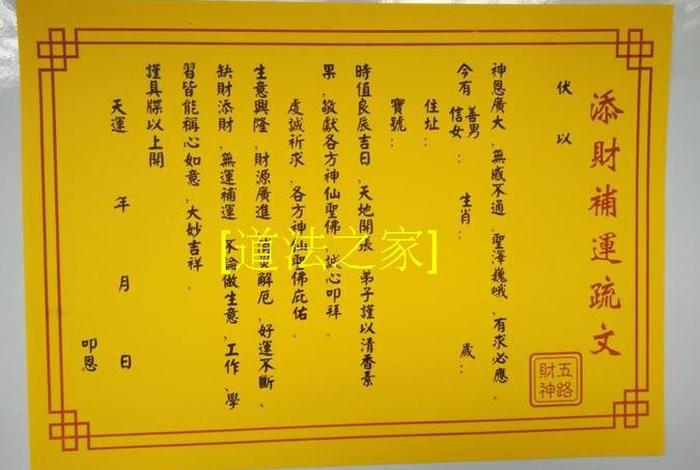 添財補運疏文
五路
財神
伏以
神恩廣大,無感不通,聖澤巍峨,有求必應。
今有善男信女: 生肖: 歲:
住址:
寶號:
時值良辰吉日,天地開張,弟子謹以清香素
果,敬獻各方神仙聖佛,誠心叩拜。
虔誠祈求,各方神仙聖佛庇佑。
生意興隆,財源廣進,消災解厄,好運不斷、
缺財添財,無運補運,不論做生意,工作,學
習皆能稱心如意,大妙吉祥。
謹具牒以上開
天運 年 月 日
叩恩
[道法之家]